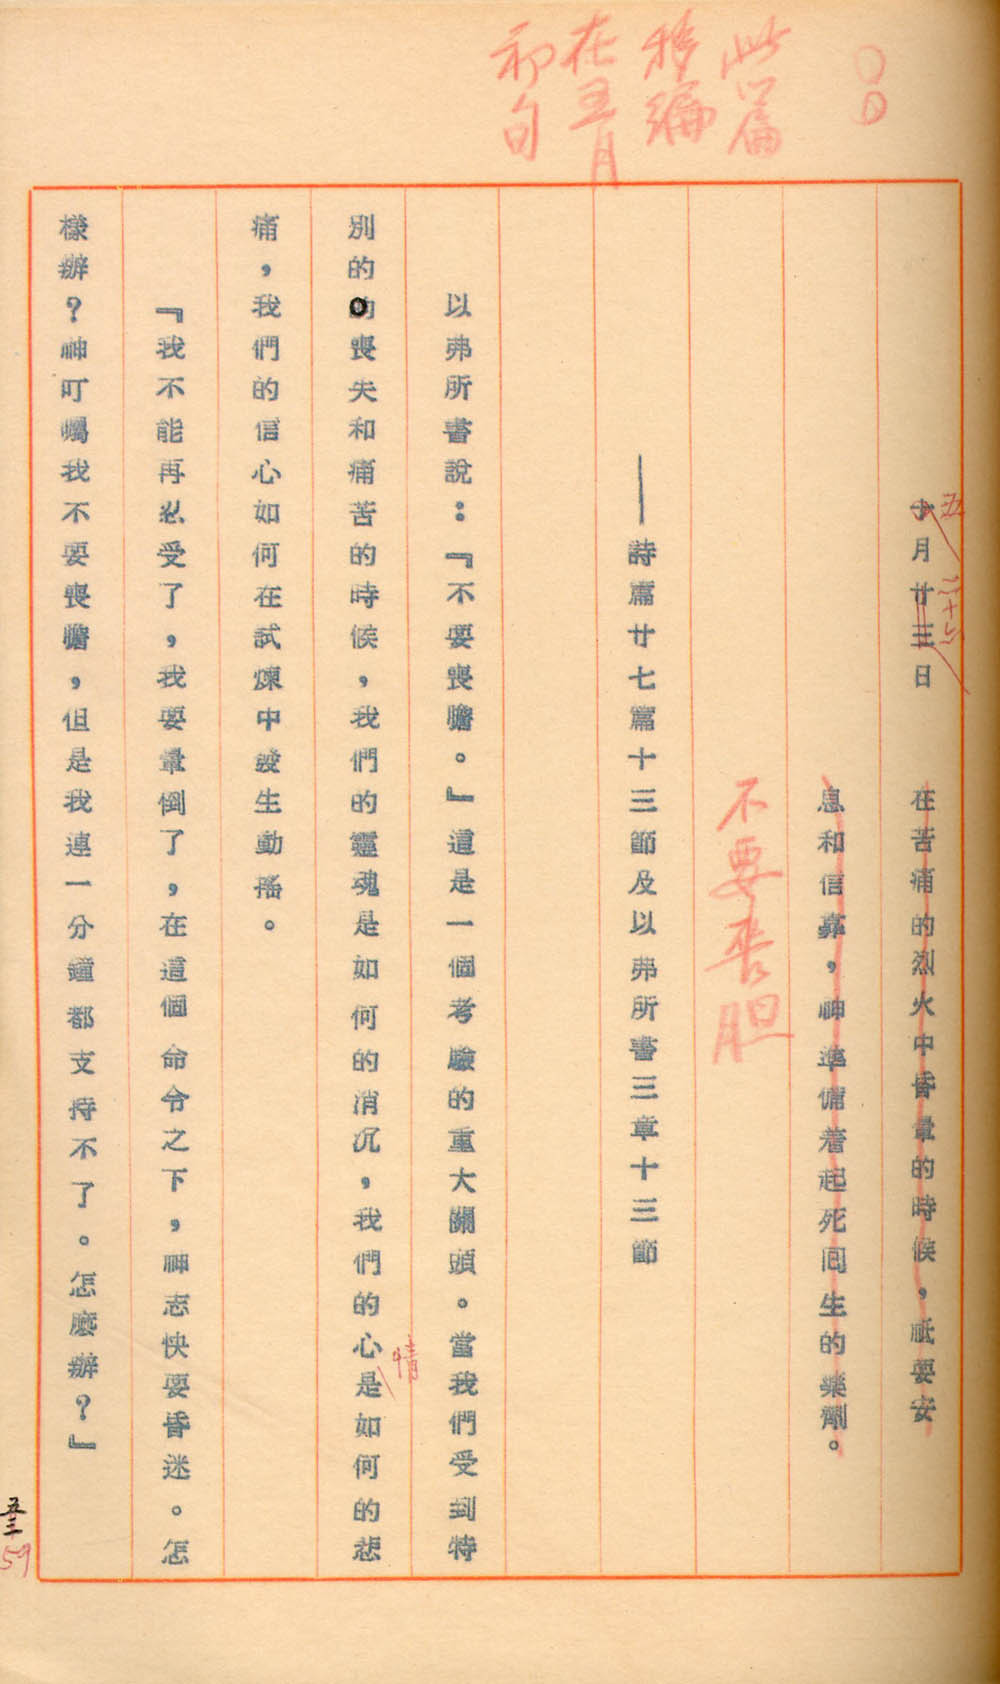 此篇
移編
在五月
初旬
十月廿三日
五
二十六
在苦痛的烈火中昏暈的時候，祇要安
息和信靠，神準備着起死回生的藥劑。
不要丧胆
——詩篇廿七篇十三節及以弗所書三章十三節
以弗所書說：『不要喪膽。』這是一個考驗的重大關頭。當我們受到特
別的的喪失和痛苦的時候，我們的靈魂是如何的消沉，我們的心是如何的悲
情
痛，我們的信心如何在試煉中發生動搖。
『我不能再忍受了，我要暈倒了，在這個命令之下，神志快要昏迷。怎
樣辦？神叮囑我不要喪膽，但是我連一分鐘都支持不了。怎麼辦？』
59